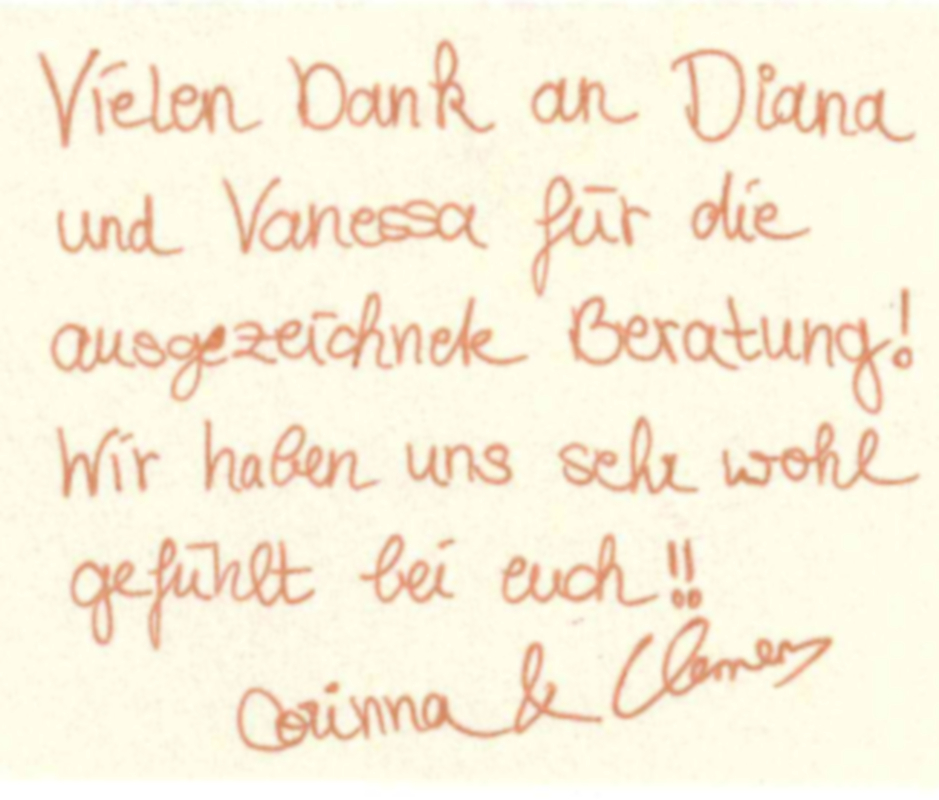 Vielen Dank an Diana
und Vanessa für die
ausgezeichnete Beratung!
Wir haben uns sehr wohl
gefühlt bei euch!!
Corinna & Clemens